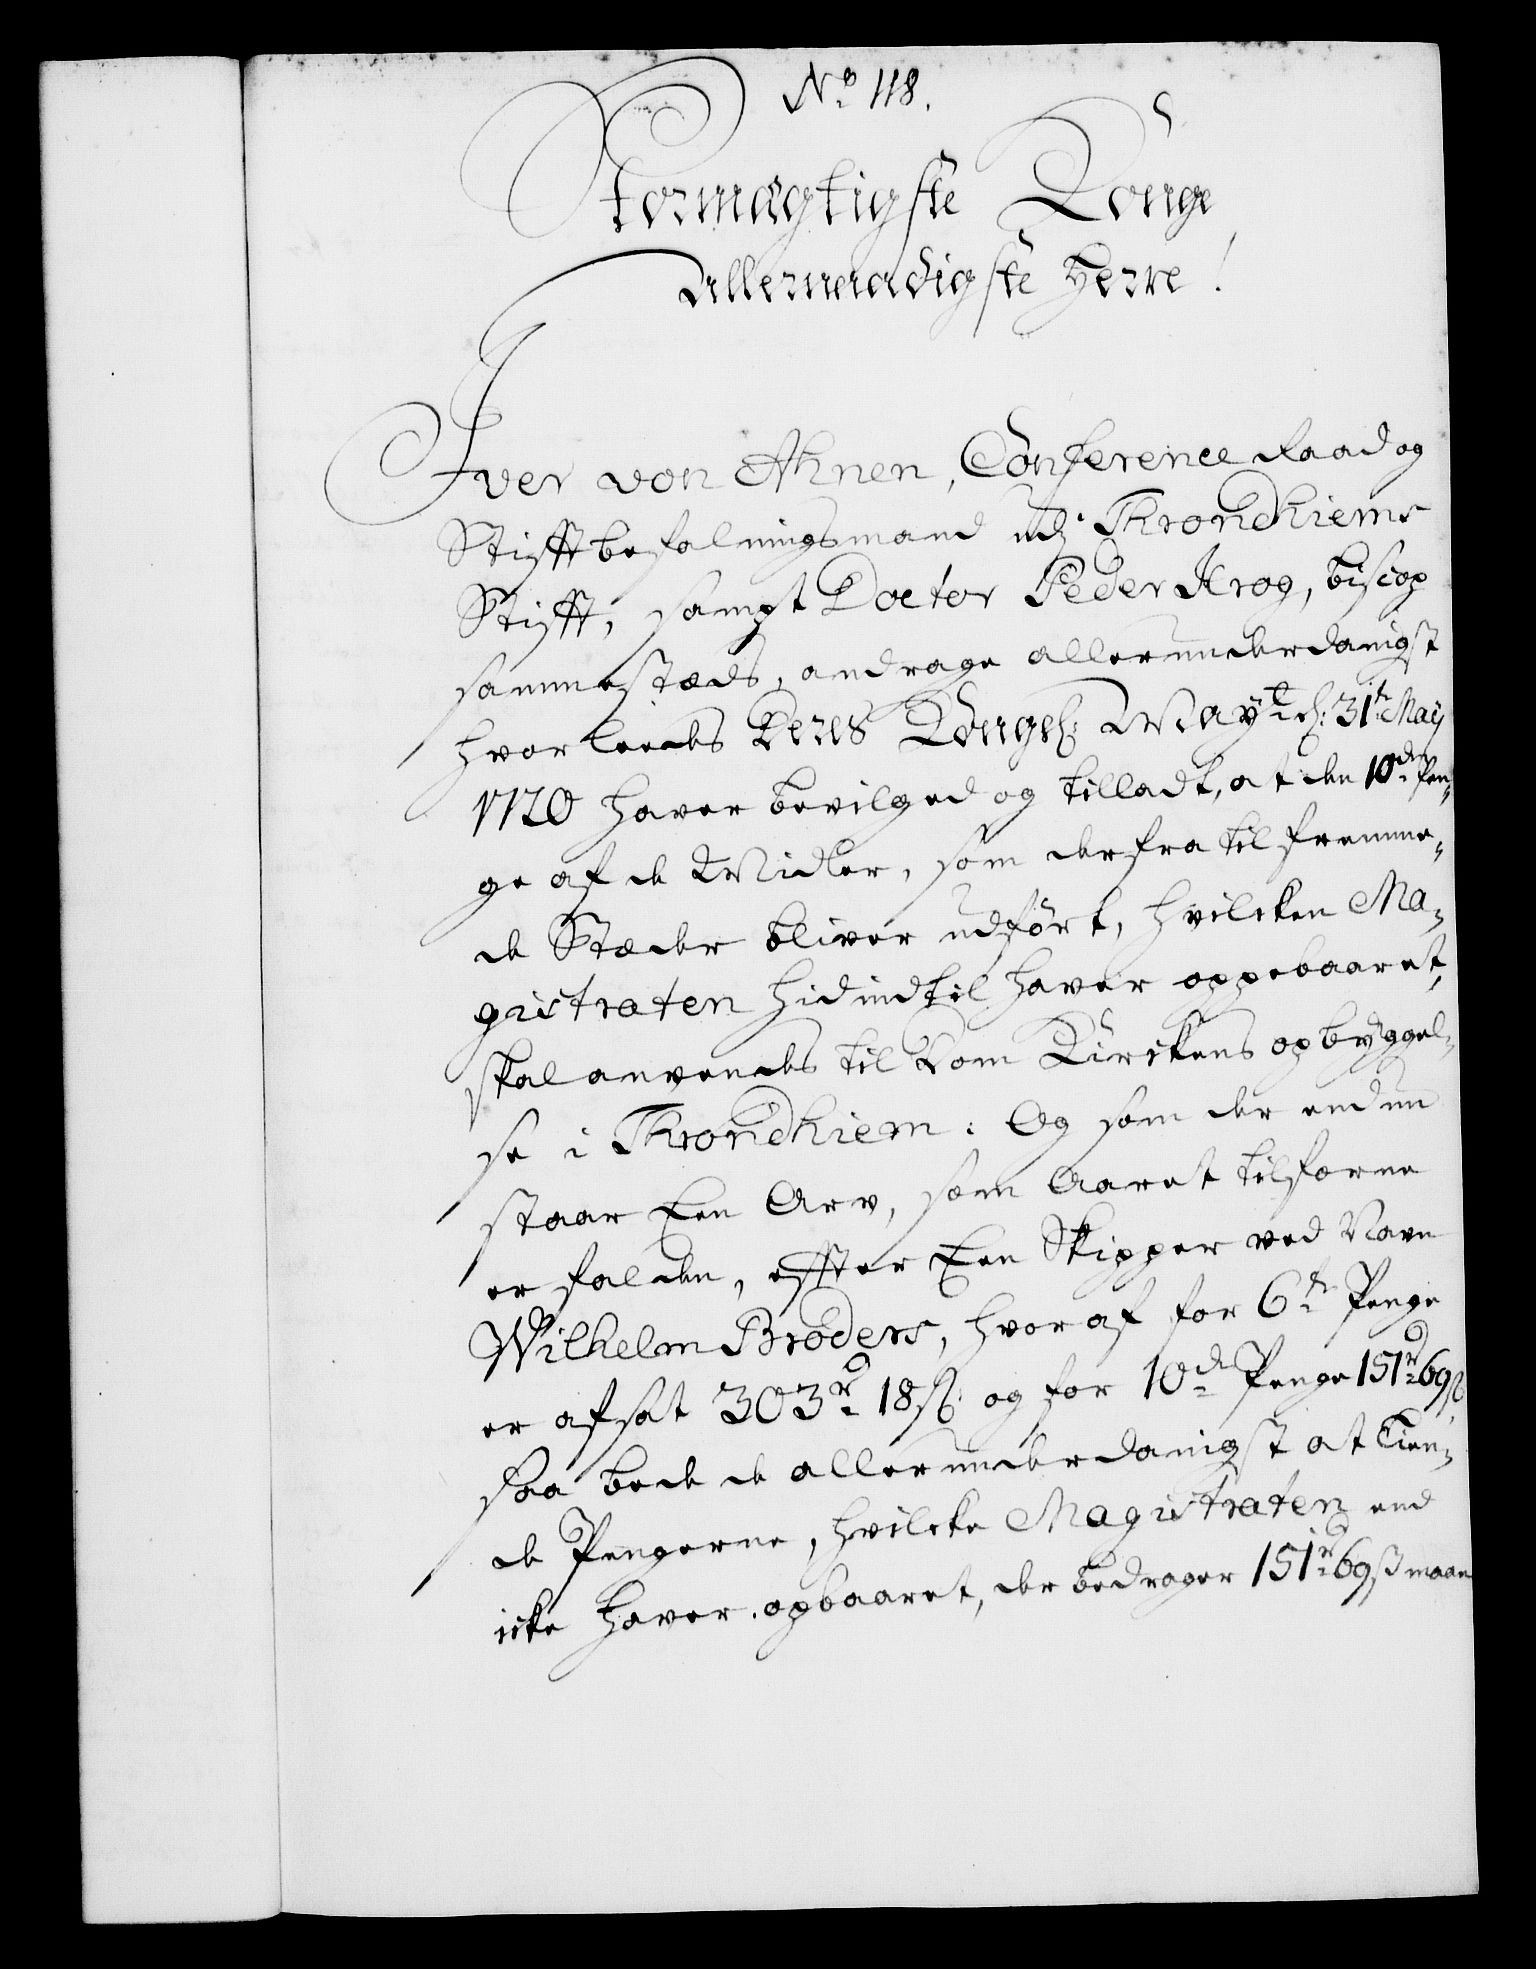 No 118.
Stormægtigste Konge
Allernaadigste Herre!
Iver von Ahnen, Conference Raad og
Stifftbefalningsmand udj Throndhiems
Stifft, sampt Doctor Peder Krog, biscop
sammestæds, andrage allerunderdanigst
hvorleedes Deres Kongl: Mayt d: 31te Maij
1720 haver bevilged og tilladt, at den 10de Pen-
ge af de Midler, som derfra til fremme-
de Stæder bliver udført, hvilcken Ma-
gistraten hidindtil haver oppebaaret,
skal anvendes til Dom Kirckens opbyggel-
se i Throndhiem: Og som der endnu
staar Een Arv, som Aaret tilforne
er falden, effter Een Skipper ved Navn
Wilhelm Broders, hvoraf for 6te Penge
er afsat 303 rd 18 ß og for 10de Penge 151 rd 69 ß
saa bede de allerunderdanigst at Tien-
de Pengerne, hvilcke Magistraten end
icke haver opbaaret, der bedrager 151 rd 69 ß maae